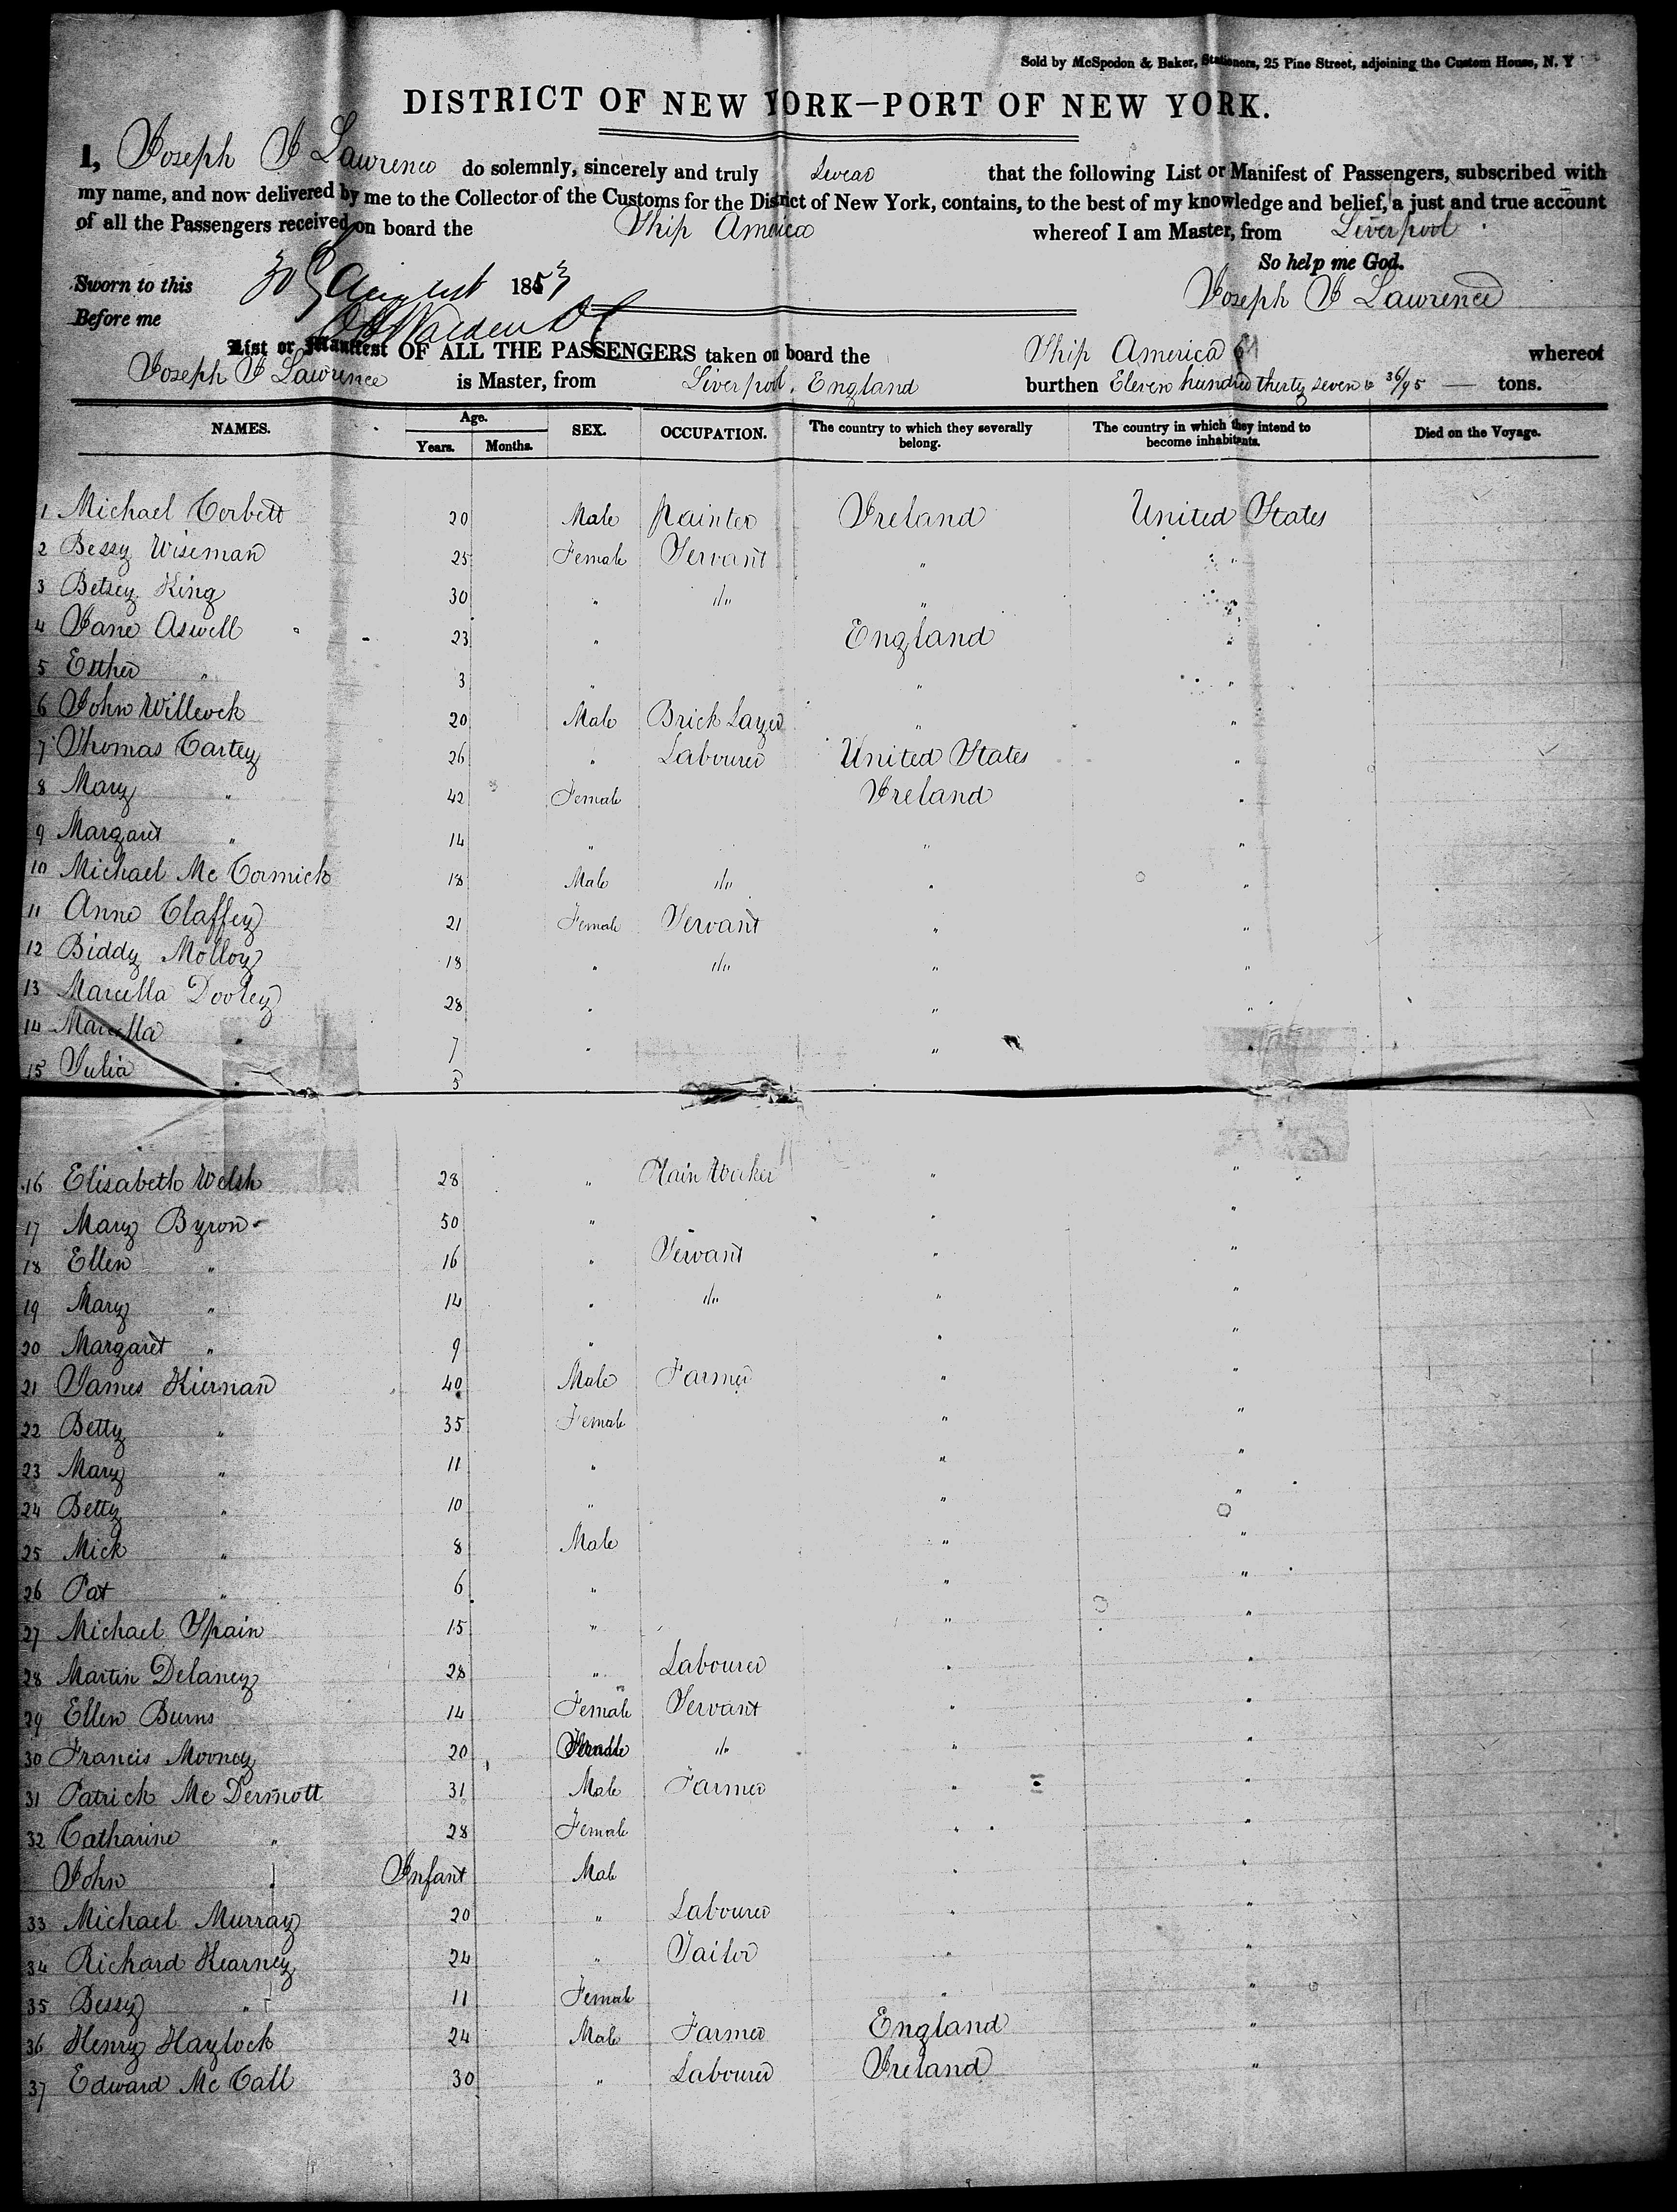 Sold by McSpedon & Baker, Stationers, 25 Pine Street, adjoining the Custom House, N. Y
DISTRICT OF NEW YORK—PORT OF NEW YORK.
I, Joseph J Lawrence do solemnly, sincerely and truly swear that the following List or Manifest of Passengers, subscribed with
my name, and now delivered by me to the Collector of the Customs for the District of New York, contains, to the best of my knowledge and belief, a just and true account
of all the Passengers received on board the Ship America whereof I am Master, from Liverpool.
So help me God.
Sworn to this 30 August 1853 Joseph J Lawrence
Before me
List or Manifest OF ALL THE PASSENGERS taken on board the Ship America whereof
Joseph J Lawrence is Master, from Liverpool, England burthen Eleven hundred thirty seven & 36/95 — tons.
NAMES. Age. Years. Months. SEX. OCCUPATION. The country to which they severally belong. The country in which they intend to become inhabitants. Died on the Voyage.
1 Michael Corbett 20 Male Painter Ireland United States
2 Bessy Wiseman 25 Female Servant " "
3 Betsey King 30 " do " "
4 Jane Aswell 23 " England "
5 Esther " 3 " " "
6 John Willcock 20 Male Brick Layer " "
7 Thomas Cartey 26 " Labourer United States "
8 Mary " 42 Female Ireland "
9 Margaret " 14 " " "
10 Michael Mc Cormick 18 Male do " "
11 Anne Claffey 21 Female Servant " "
12 Biddy Molloy 18 " do " "
13 Marcella Dooley 28 " " "
14 Marcella " 7 " " "
15 Julia " 5
16 Elisabeth Welsh 28 " Plain Worker " "
17 Mary Byron 50 " " "
18 Ellen " 16 " Servant " "
19 Mary " 14 " do " "
20 Margaret " 9 " " "
21 James Kiernan 40 Male Farmer " "
22 Betty " 35 Female " "
23 Mary " 11 " " "
24 Betty " 10 " " "
25 Mick " 8 Male " "
26 Pat " 6 " " "
27 Michael Spain 15 " " "
28 Martin Delaney 28 " Labourer " "
29 Ellen Burns 14 Female Servant " "
30 Francis Mooney 20 do " "
31 Patrick Mc Dermott 31 Male Farmer " "
32 Catharine " 28 Female " "
John " Infant Male " "
33 Michael Murray 20 " Labourer " "
34 Richard Kearney 24 " Tailor " "
35 Bessy " 11 Female " "
36 Henry Haylock 24 Male Farmer England "
37 Edward Mc Call 30 " Labourer Ireland "